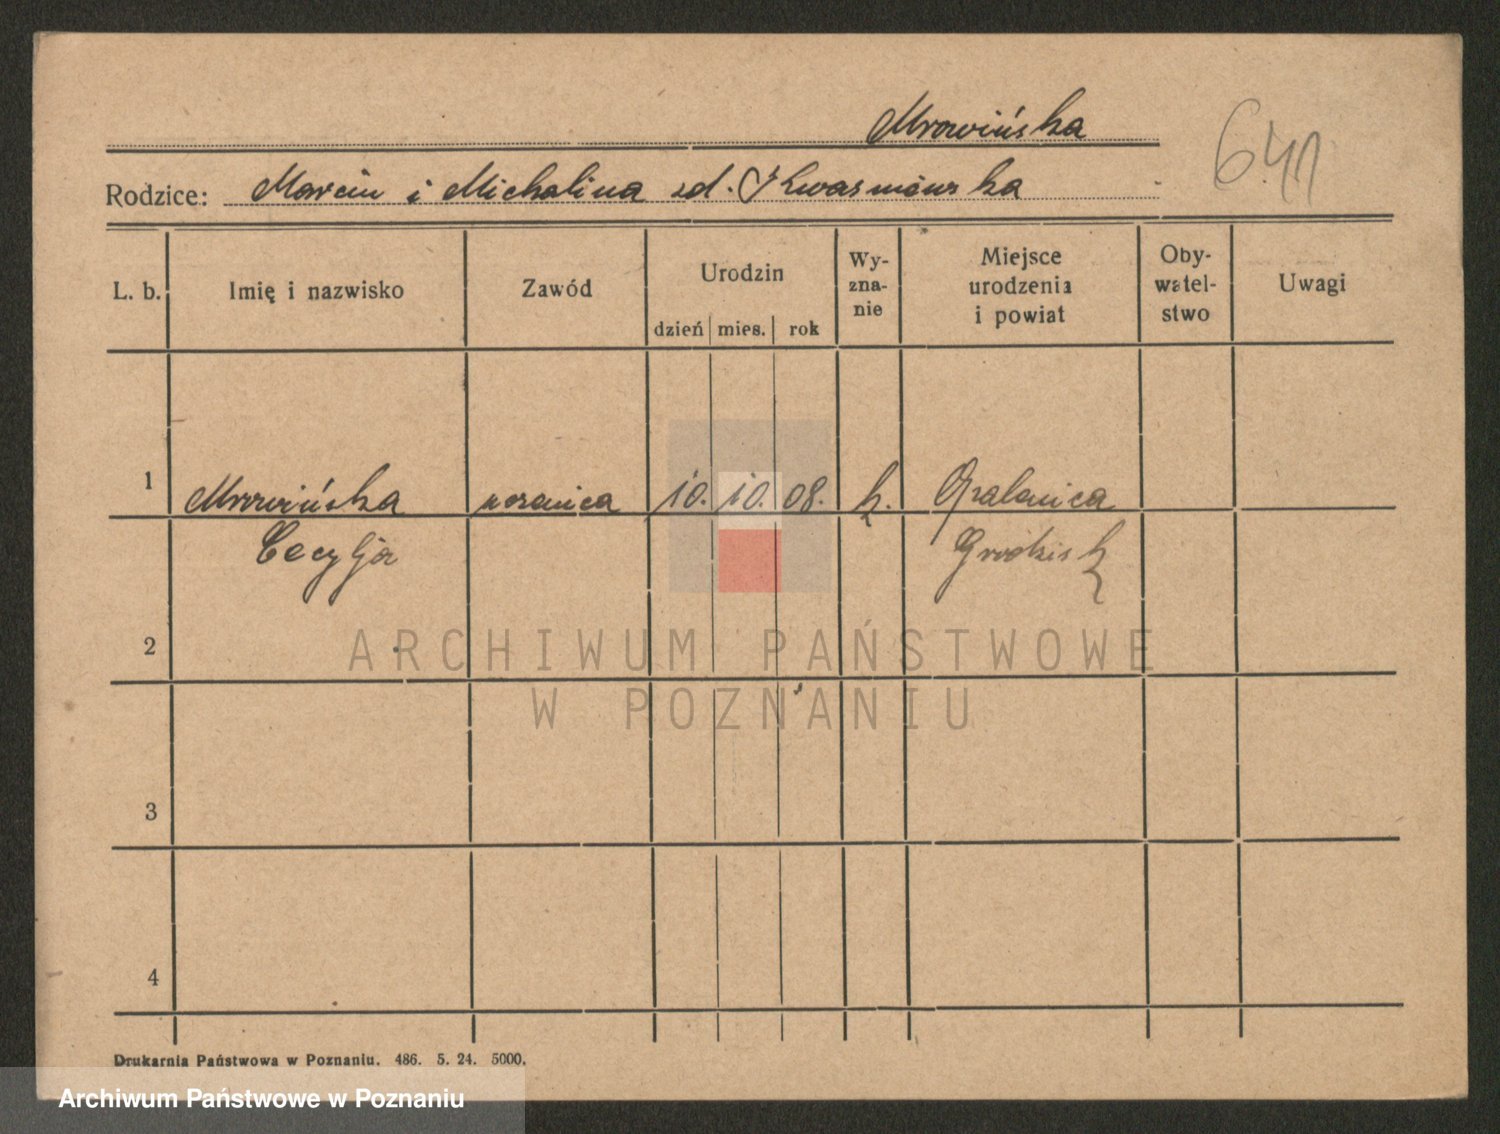 Mrowińska
641
Rodzice: Marcin i Michalina zd. Kwasniewska
L. b. Imię i nazwisko Zawód Urodzin Wy-zna-nie Miejsce urodzenia i powiat Oby-watel-stwo Uwagi
dzień mies. rok
1 Mrowińska 10. 10. 08. k. Opalenica
Cecylja Grodzisk
2
ARCHIWUM PAŃSTWOWE
W POZNANIU
3
4
Drukarnia Państwowa w Poznaniu. 486. 5. 24. 5000.
Archiwum Państwowe w Poznaniu